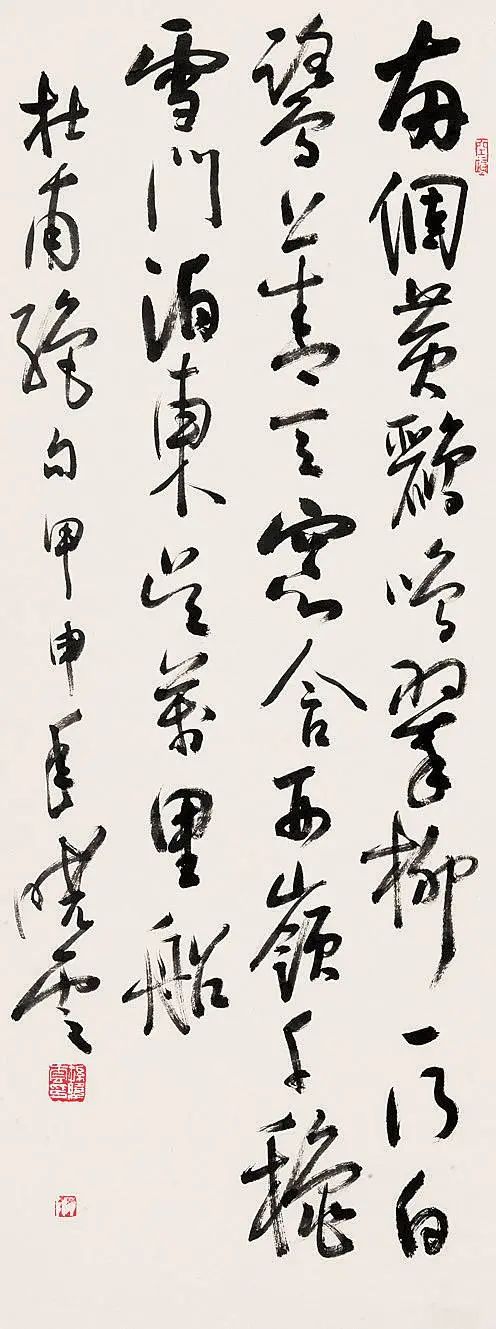 兩個黄鸝鳴翠柳一行白
鷺上青天窗含西嶺千穐
雪門泊東吴萬里船
杜甫絶句甲申年曉雲